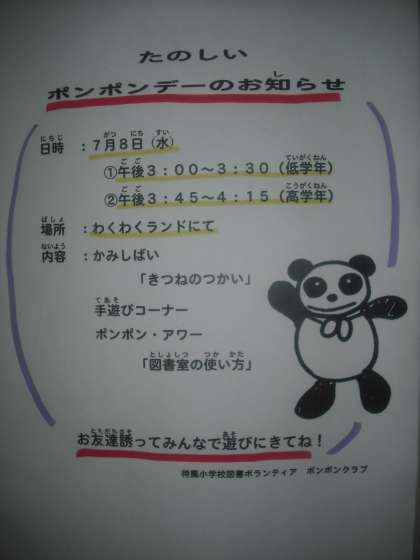 たのしい
ポンポンデーのお知らせ
日時 ：７月８日（水）
①午後３：００～３：３０（低学年）
②午後３：４５～４：１５（高学年）
場所 ：わくわくランドにて
内容 ：かみしばい
「きつねのつかい」
手遊びコーナー
ポンポン・アワー
「図書室の使い方」
お友達誘ってみんなで遊びにきてね！
小学校図書ボランティア ポンポンクラブ